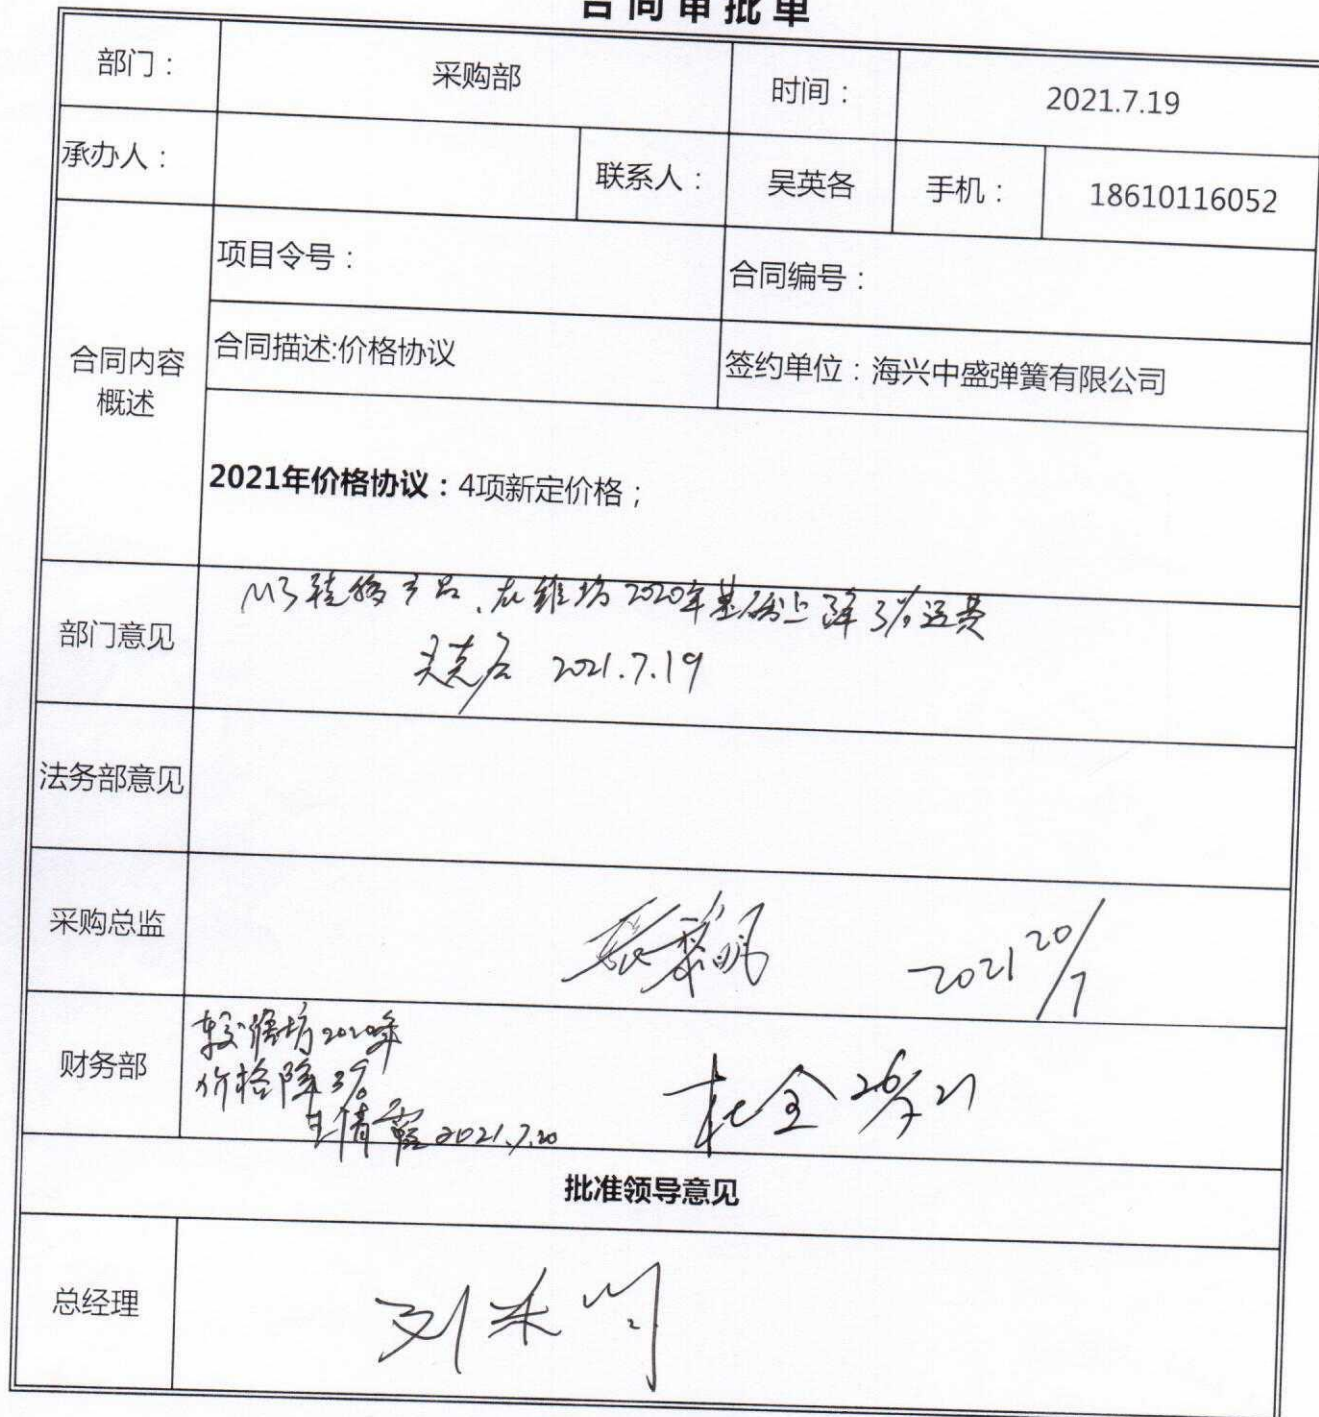 合同审批单
部门： 采购部 时间： 2021.7.19
承办人： 联系人： 吴英各 手机： 18610116052
项目令号： 合同编号：
合同内容
概述
合同描述:价格协议 签约单位：海兴中盛弹簧有限公司
2021年价格协议：4项新定价格；
部门意见
M3转移产品、在潍坊2020年基础上降3%运费
2021.7.19
法务部意见
采购总监 2021 20/7
财务部
较潍坊2020年
价格降3%
王倩霞 2021.7.20
批准领导意见
总经理